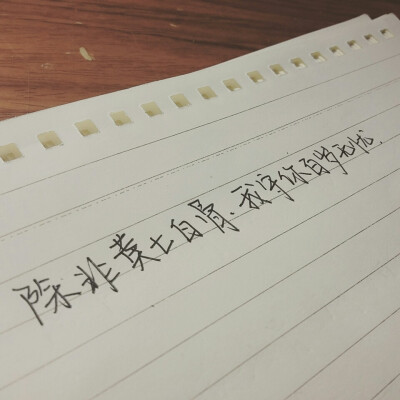 除非黄土白骨.我守你百岁无忧.